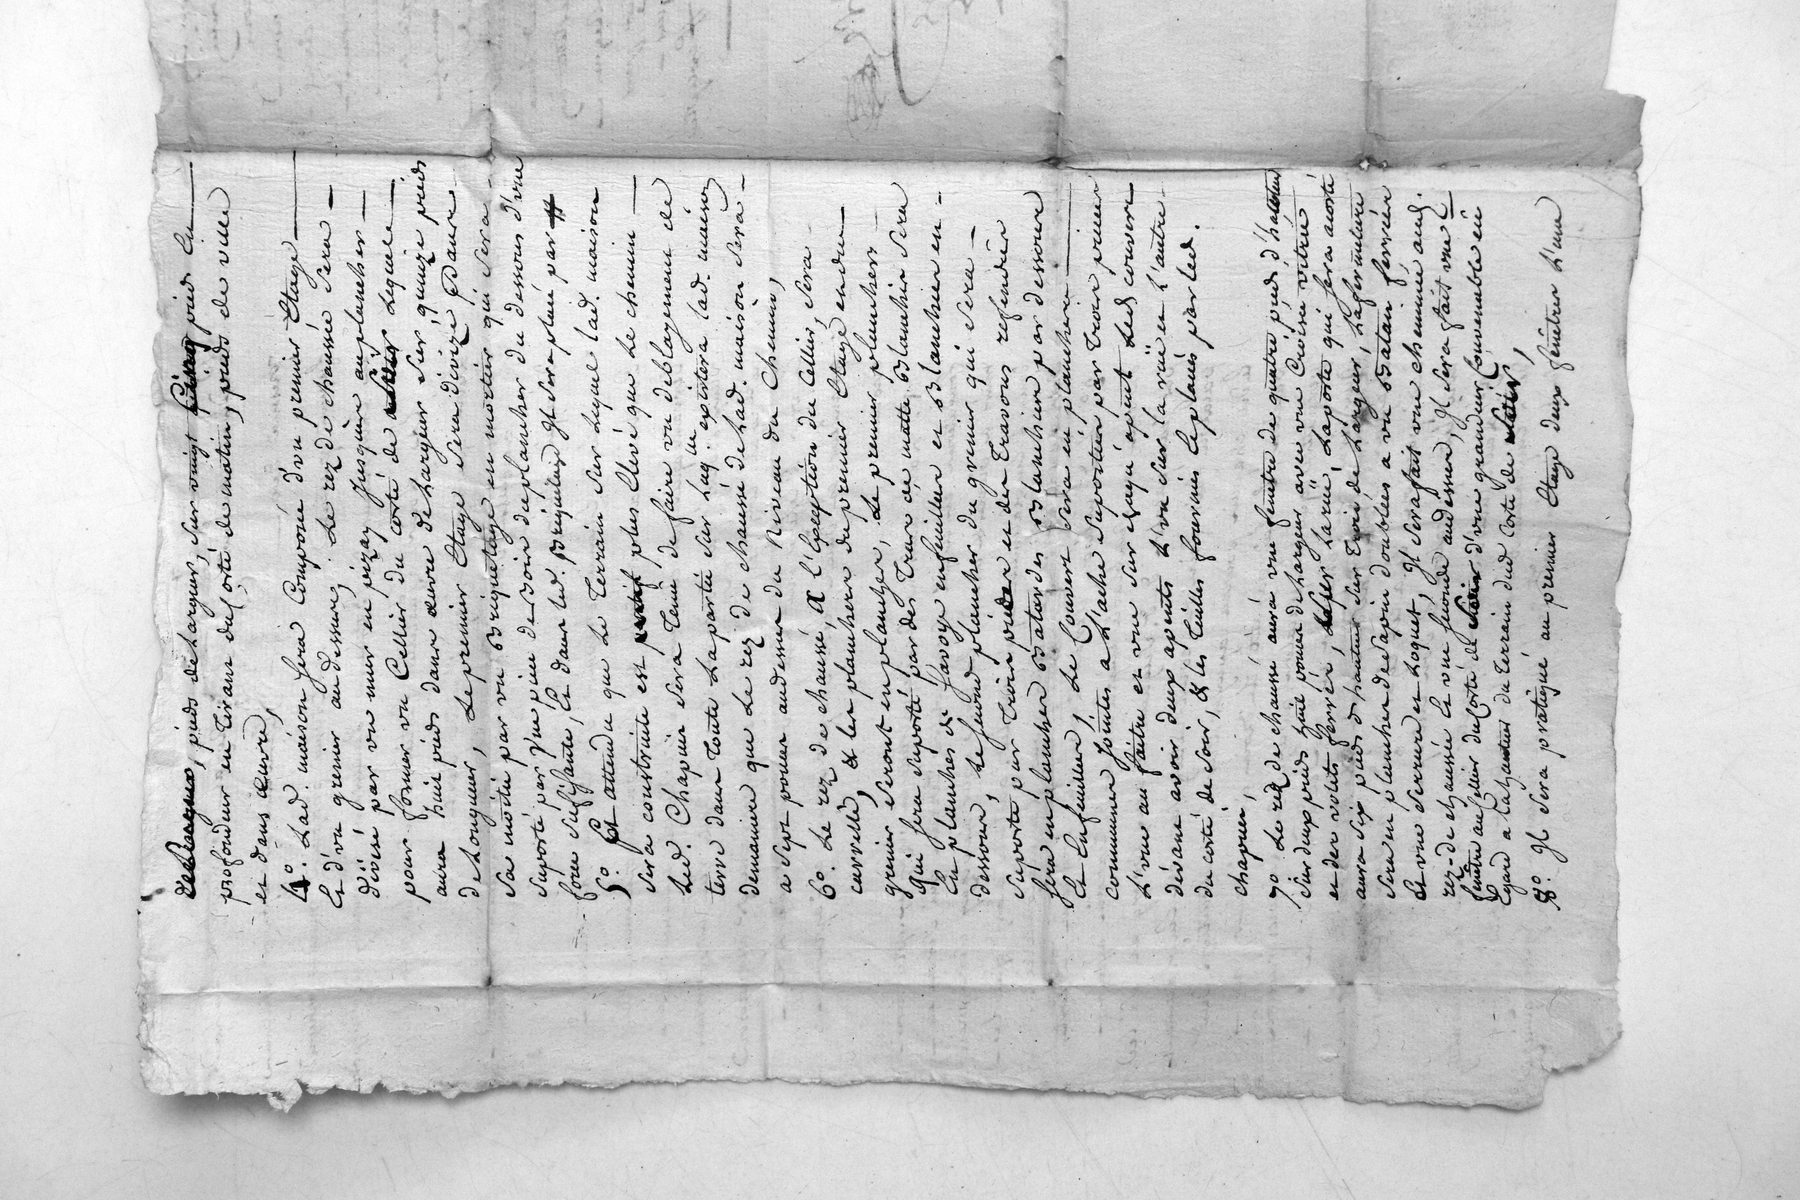 pieds de Largeur, sur vingt pieds En
profondeur en tirant du Corté de matin, pieds de ville
et dans œuvre,
4°. Lad. maison sera Composée d'un premier Etage
Et d'un grenier au dessus, Le rez de chaussé sera
divisé par un mur en pizay jusques au plancher
pour former un Cellier du corté de Lequele
aura huit pieds dans œuvre de Largeur sur quinze pieds
de Longueur, Le premier Etage sera divizé Dans
sa moitié par un Briquetage en mortier qui sera
suporté par de Bois du plancher du dessous d'une
force sufisante, Et dans led. Briquetage Il sera placé par
5°. Et attendu que Le Terrain sur Lequel lad. maison
sera construite est plus Elevé que Le chemin
Led. Chapuis sera Tenu de faire un deblayement de
terre dans toute La partie sur Laq.lle existera lad. maison
de maniere que Le rez de chaussé de Lad. maison sera
a sept pouces au dessus du Niveau du Chemin,
6°. Le rez de chaussé, a l'Exception du Cellier, sera
carrellé, & les planchers du premier Etage et du
grenier seront en plancher, Le premier plancher
qui sera suporté par des Travs de Blanchis sera
En planches de Savoye enfeuillées et Blanchies en
dessous, Le second plancher du grenier qui sera
suporté par trois pieces et des Travons refendus
sera en planches Batardes Blanchies par dessous
Et Enfeuillées, Le Couvert sera en planches
communes jointes a L'autre suportées par Trois pieces
L'une au faitre et une sur chaque apent Led. couvert
devant avoir deux apents L'un sur la rüe et L'autre
du corté de soir, & les tuilles fournies & placés par led.
chapuis,
7°. Le rez de chaussé aura une fenetre de quatre pieds d'hauteur
sur deux pieds huit pouces de Largeur avec une Croisée vitrée
et des volets ferrés, sur La rüe, La porte qui sera a corté
aura six pieds d'hauteur sur trois de Largeur, La fermeture
sera en planches de Sapin doublées a un Batant ferrées
de une serrure et Loquet, Il sera fait une cheminée aud.
rez-de chaussée Et une seconde au dessus, Il sera fait une
fenêtre au Cellier du Corté de soir d'une grandeur Convenable eu
Egard a la hauteur du Terrain dud. Corté de soir,
8°. Il sera pratiqué au premier Etage deux fenêtres L'une